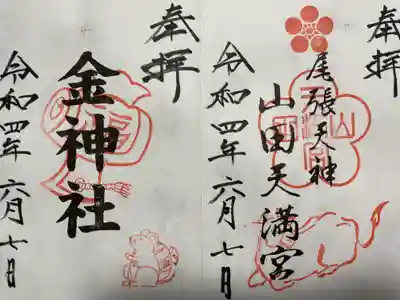 奉拝
尾張天神
山田天満宮
令和四年六月七日
奉拝
金神社
令和四年六月七日